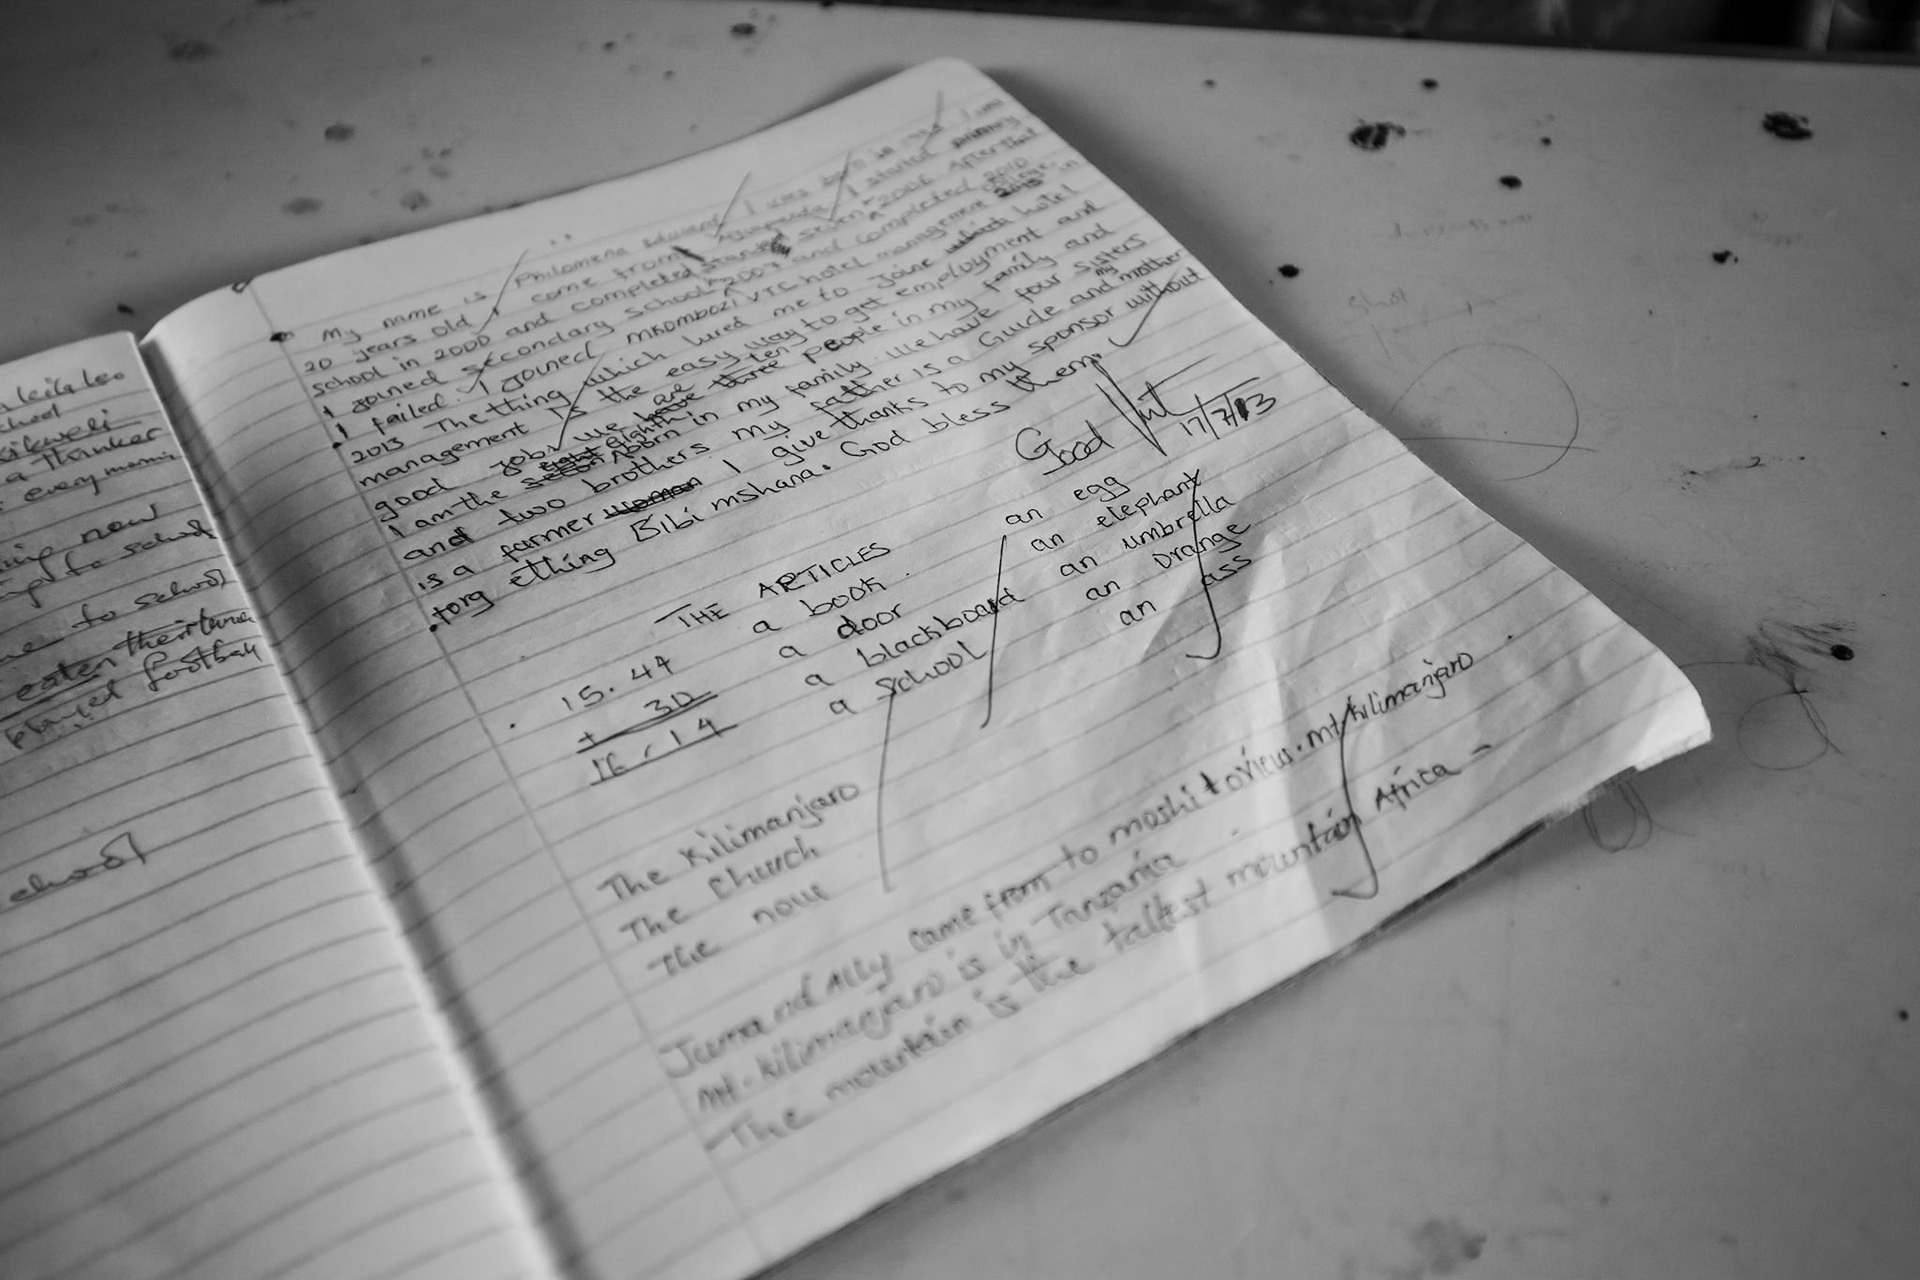 n leila leo
school
a thinker
every morni
ing now
to school
me to school
eaten their lunch
played football
school
My name is Philomena Edward I was born in I am
20 years old I come from I started primary
school in 2000 and completed standard seven 2006 After that
I joined secondary school 2007 and completed 2010
I failed. I joined mkombozi VTC hotel management college in
2013 The thing which lured me to joine which hotel
management is the easy way to get employment and
good job. we have are three ten people in my family and
I am the eighth born in my family. we have four sisters
and two brothers my father is a Guide and my mother
is a farmer woman I give thanks to my sponsor without
forg ething Bibi mshana. God bless them.
Good
17/7/13
THE ARTICLES
a book
a door
a blackboard
a school
an egg
an elephant
an umbrella
an orange
an ass
15.44
+ 30
16.14
The Kilimanjaro
The Church
The now
Juma nd Ally came from to moshi to view. mt kilimanjaro
mt. kilimanjaro is in Tanzania
The mountain is the tallest mountain Africa -